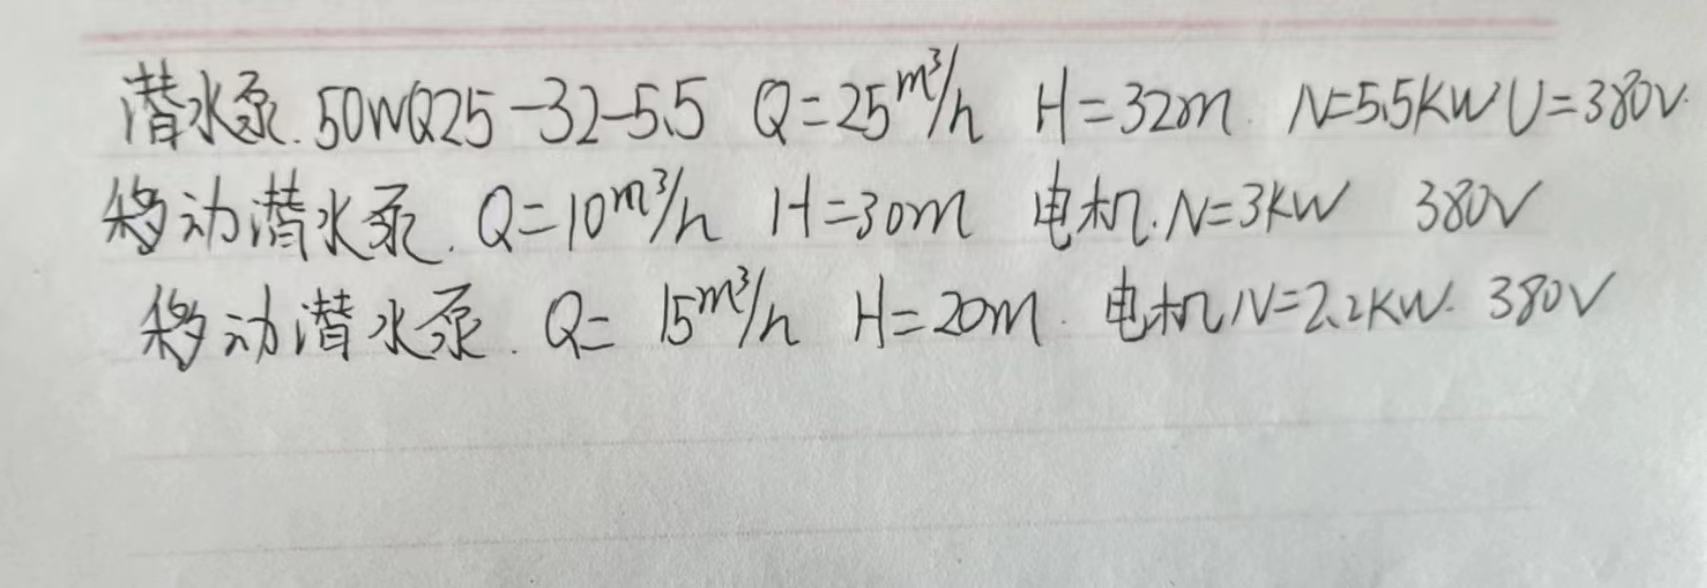 潜水泵.50WQ25-32-5.5 Q=25m³/h H=32m. N=5.5KW U=380V.
移动潜水泵. Q=10m³/h H=30m 电机.N=3KW 380V
移动潜水泵. Q= 15m³/h H=20m. 电机N=2.2KW. 380V